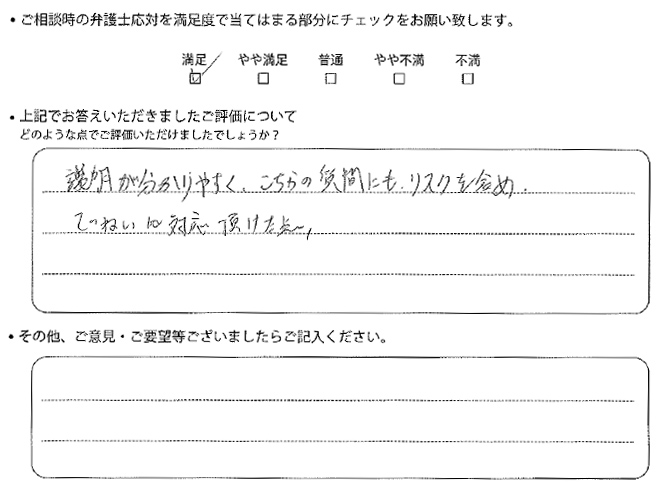 • ご相談時の弁護士応対を満足度で当てはまる部分にチェックをお願い致します。
満足 やや満足 普通 やや不満 不満
• 上記でお答えいただきましたご評価について
どのような点でご評価いただけましたでしょうか?
説明が分かりやすく、こちらの質問にも、リスクを含め、
ていねいに対応頂けた点。
• その他、ご意見・ご要望等ございましたらご記入ください。